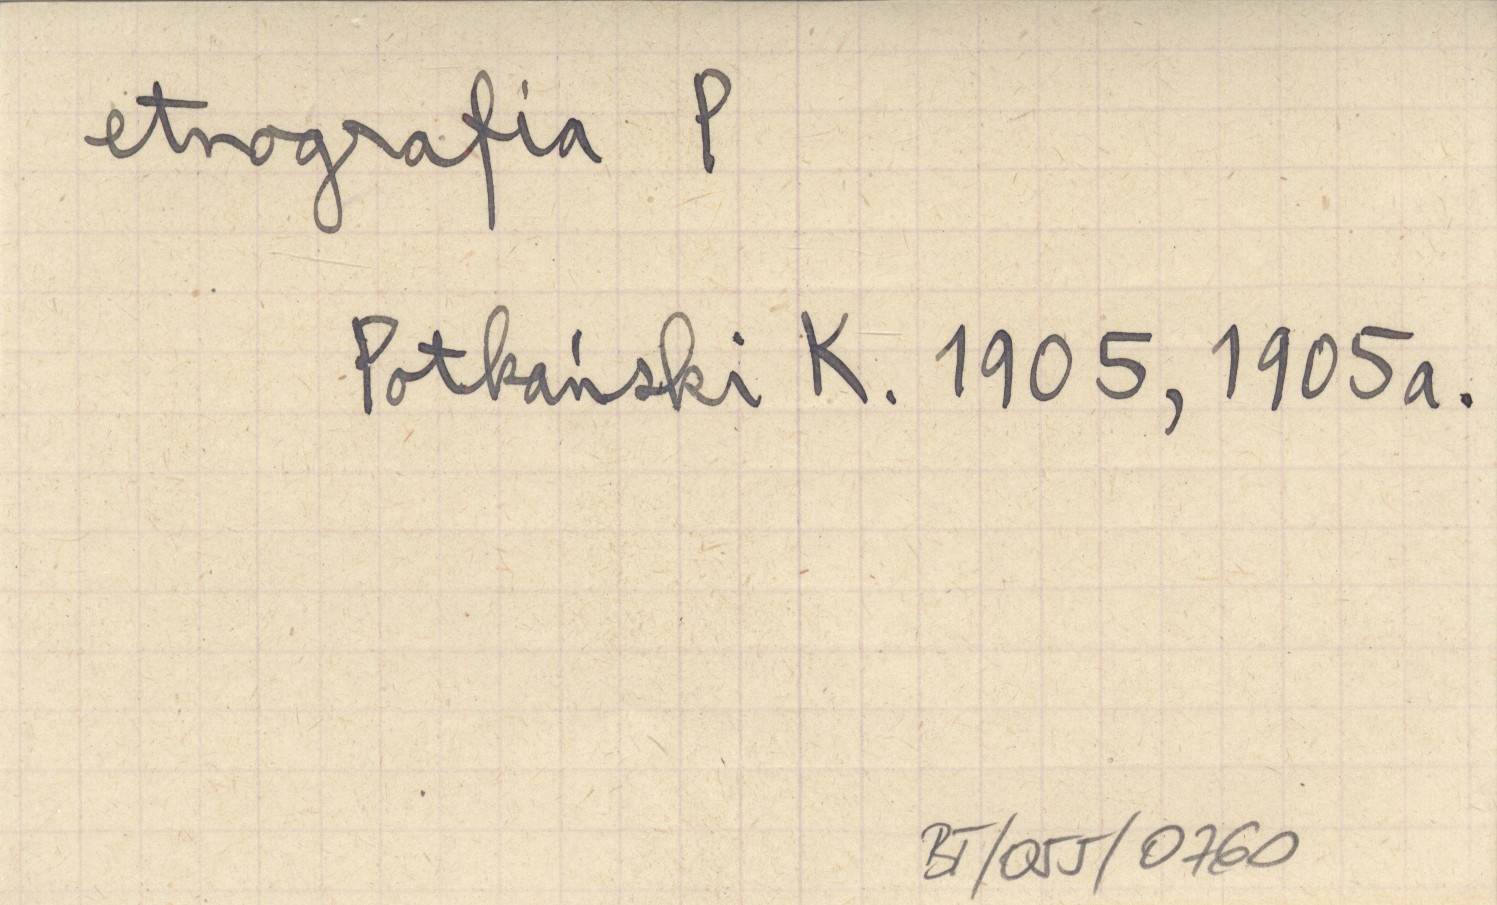 etnografia P
Potkański K. 1905, 1905a.
BT/055/0760